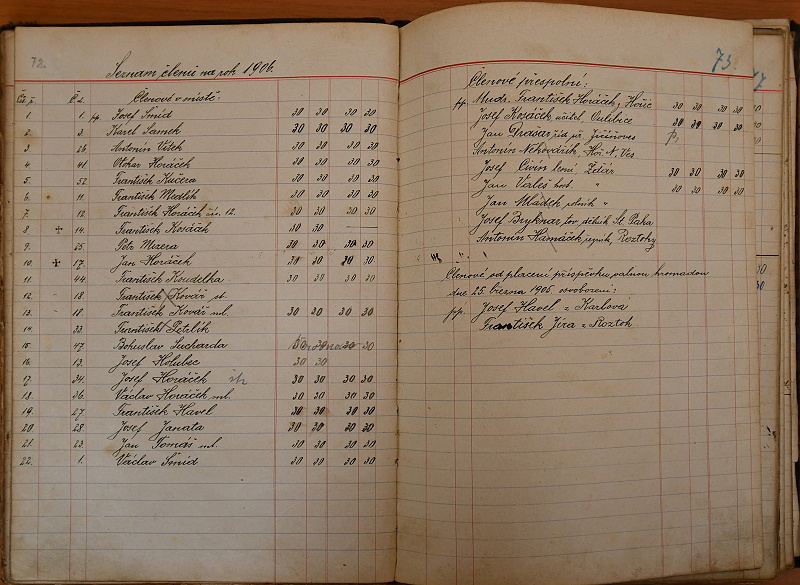 72.
Seznam členů na rok 1906.
Čís. p. Č. d. Členové v místě.
1. 1. pp. Josef Šmíd 30 30 30 30
2. 3. Karel Samek 30 30 30 30
3. 26 Antonín Vítek 30 30 30 30
4. 41 Otokar Horáček 30 30 30 30
5. 52 František Kučera 30 30 30 30
6. 11. František Mudlík 30 30 30 30
7. 12 František Horáček čís. 12. 30 30 30 30
8. + 14. František Kosáček 30 30
9. 25. Petr Muzera 30 30 30 30
10. + 17. Jan Horáček 30 30 30 30
11. 44. František Koudelka 30 30 30 30
12. 18. František Kovář st.
13. 18. František Kovář ml. 30 30 30 30
14. 33 František Petrlík
15. 47 Bohuslav Sucharda
16. 13. Josef Holubec 30 30
17. 34. Josef Horáček 30 30 30 30
18. 36. Václav Horáček ml. 30 30 30 30
19. 27 František Havel 30 30 30 30
20. 28. Josef Janata 30 30 30 30
21. 23. Jan Tomáš ml. 30 30 30 30
22. 1. Václav Šmíd 30 30 30 30
73.
Členové přespolní:
pp. Mudr. František Horáček, Hořic 30 30 30 30
Josef Kosáček učitel Úulibice 30 30 30 30
Jan Drašar Jičíněves
Antonín Nehovářík, Hor. N. Ves
Josef Čivín Žďár 30 30 30 30
Jan Valeš host. " 30 30 30 30
Jan Mládek rolník "
Josef Bryknar tov. dělník St. Paka
Antonín Hamáček, Roztoky
Členové od placení příspěvku valnou hromadou
dne 25. března 1905 osvobození:
pp. Josef Havel z Karlova
František Jíra z Roztok